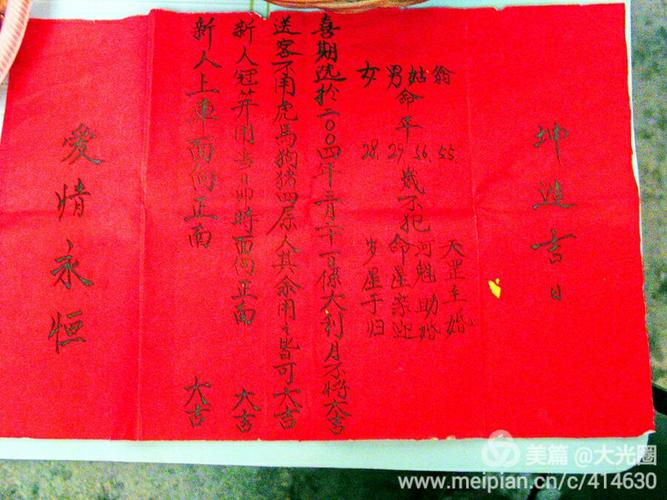 坤造吉日
翁 55 天罡主婚
姑 命 56 岁 河魁助婚
男 年 29 不犯 命星亲迎
女 28 岁星于归
喜期选于二〇〇四年二月二十一日系大利月不将大吉
送客不用虎马狗猪四属人其余用之皆可大吉
新人冠笄用当日卯时面向正南 大吉
新人上车面向正南 大吉
爱情永恒
美篇 @大光圈
www.meipian.cn/c/414630